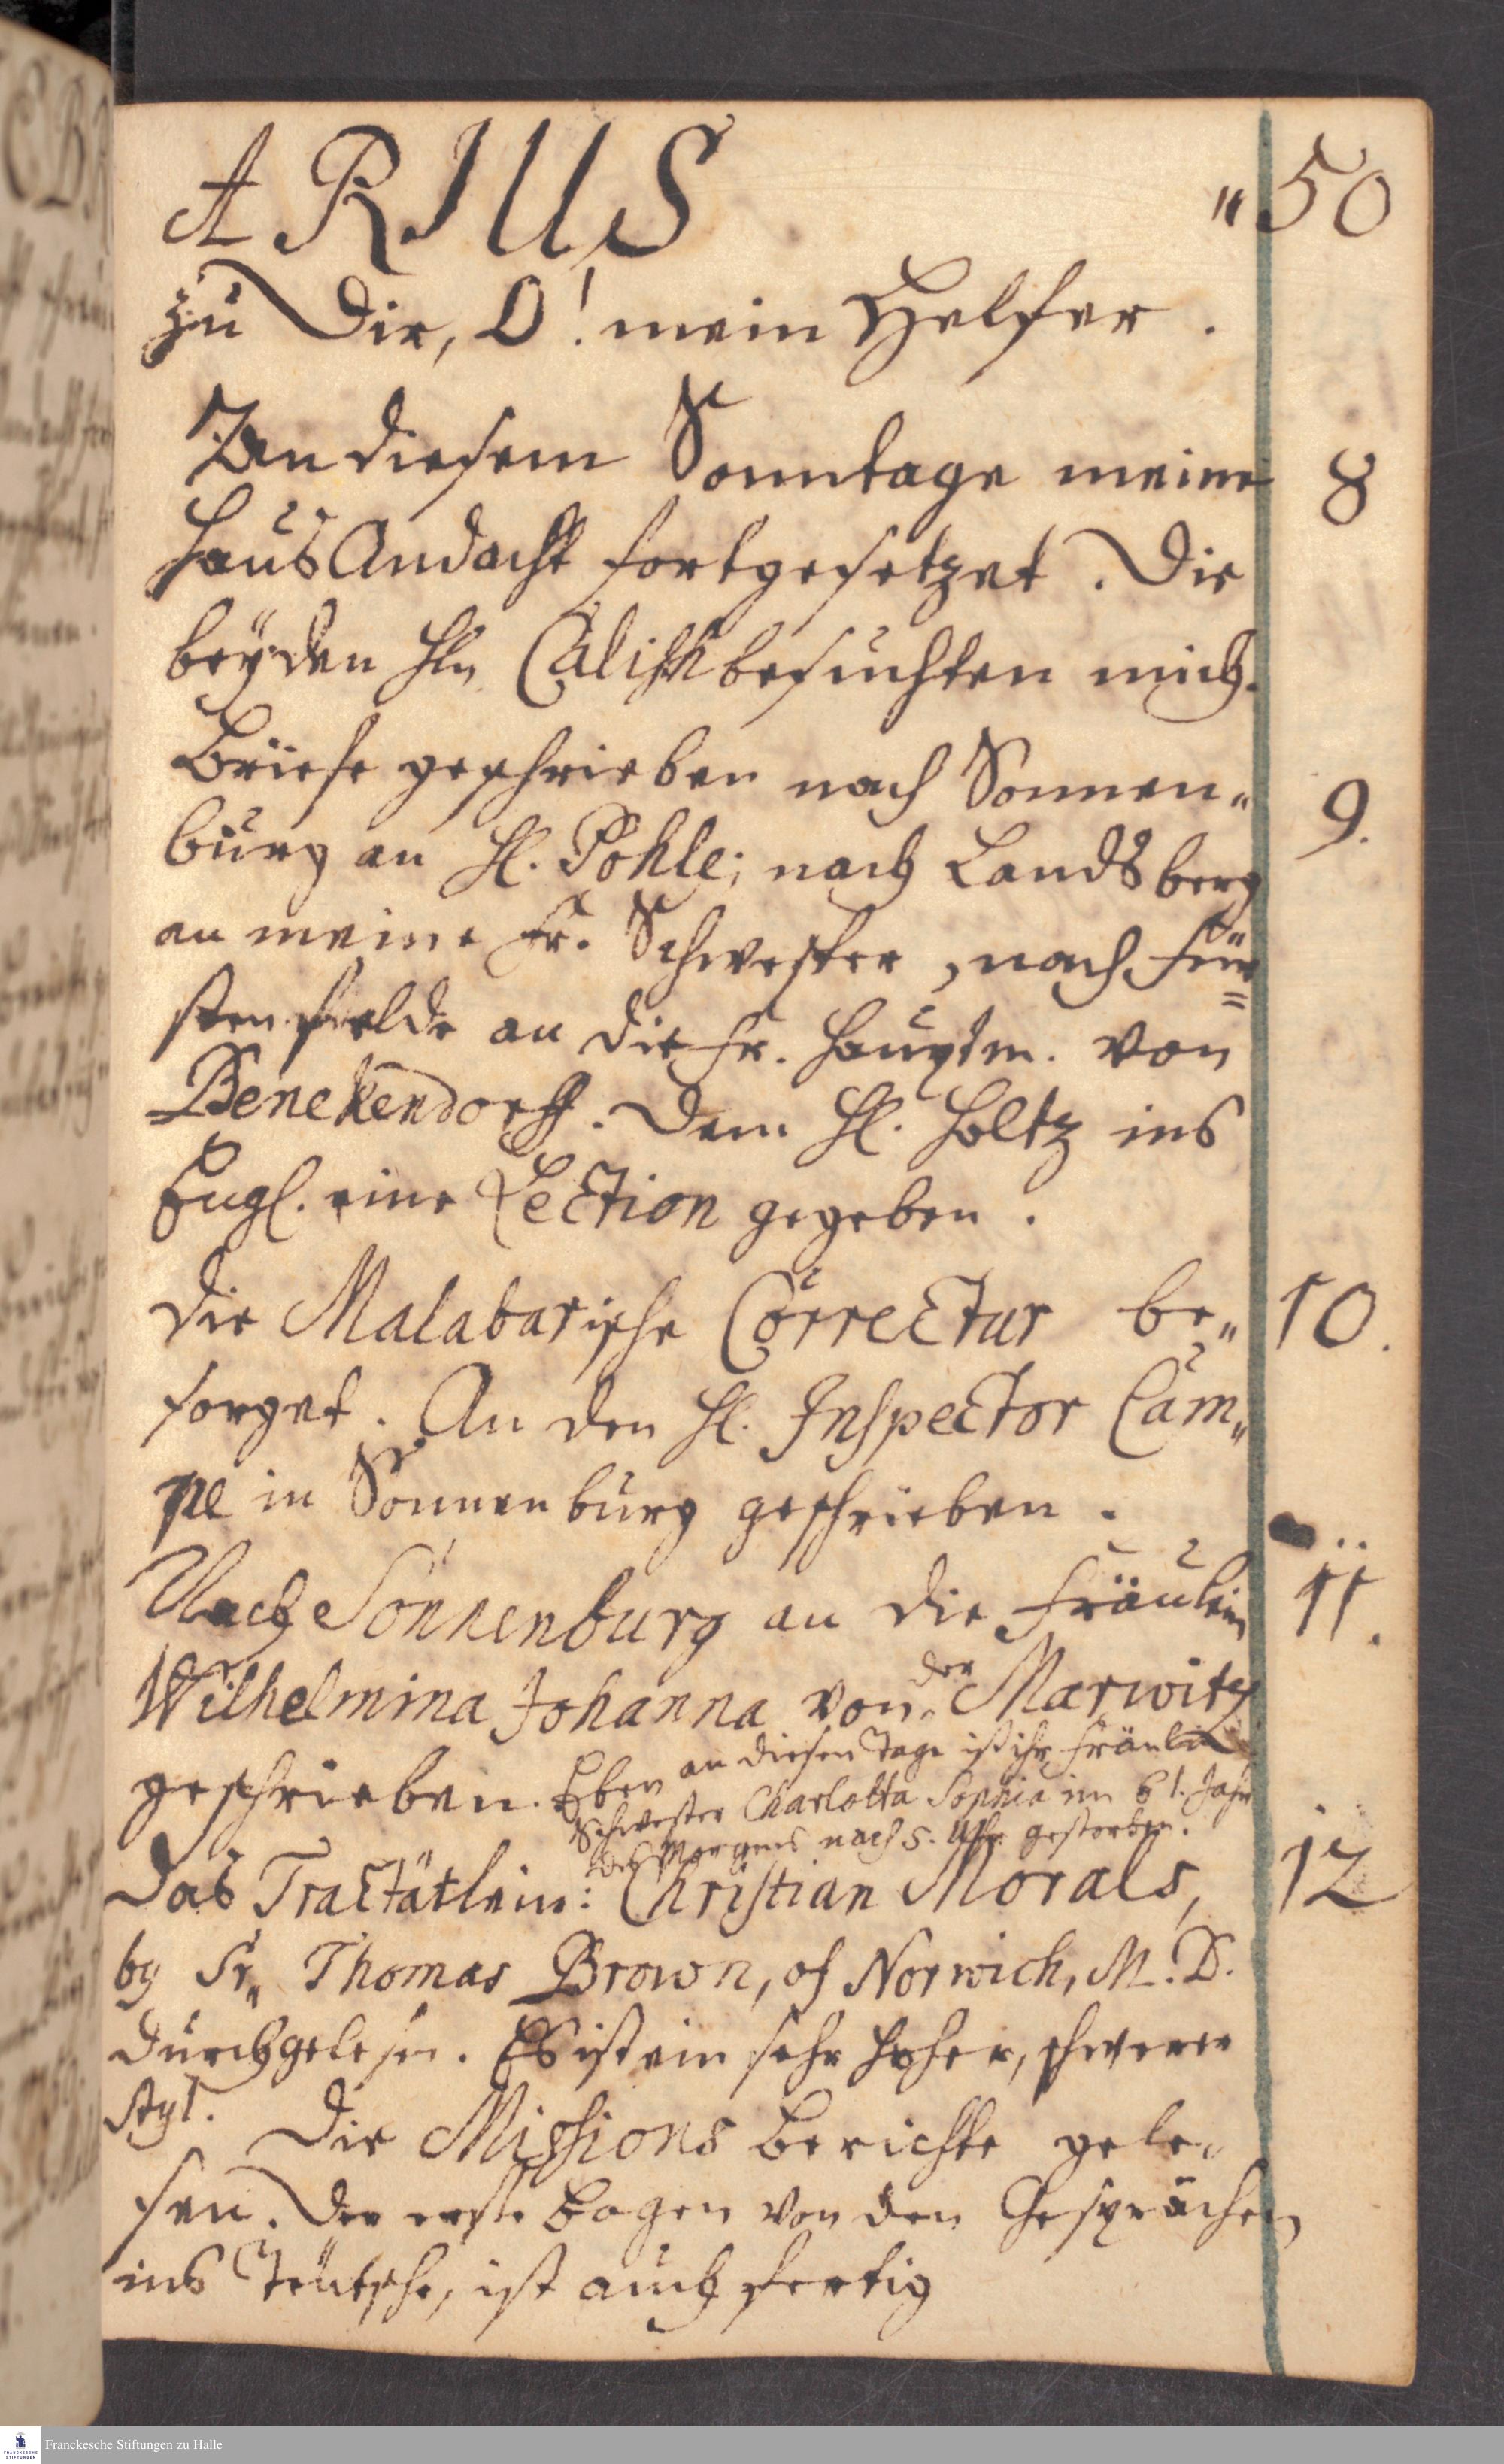 ARIUS „50
zu Dir, O! mein Helfer.
An diesem Sonntage meine 8
HausAndacht fortgesetzet. Die
beyden Hln Calish besuchten mich.
Briefe geschrieben nach Sonnen„
burg an Hl. Pohle; nach Landsberg 9.
an meine Fr. Schwester, nach Für=
stenfelde an die Fr. Hauptm. von
Benekendorff. Dem Hl. Holtz ins
Engl. eine Lection gegeben.
Die Malabarische Correctur be„ 10.
sorget. An den Hl. Inspector Cam„
pe in Sonnenburg geschrieben.
Nach Sonnenburg an die Fräulein 11.
Wilhelmina Johanna von der Marwitz
geschrieben. Eben an diesen Tage ist ihr Fräulein
Schwester Charlotta Sophia im 61. Jahr
des Morgens nach 5. Uhr gestorben.
Das Tractätlein: Christian Morals, 12
by Sr„ Thomas Brown, of Norwich, M.D.
durchgelesen. Es ist ein sehr hoher, schwerer
Styl. Die Missions Berichte gele„
sen. Der erste Bogen von den Gesprächen
ins Teutsche, ist auch fertig
Franckesche Stiftungen zu Halle